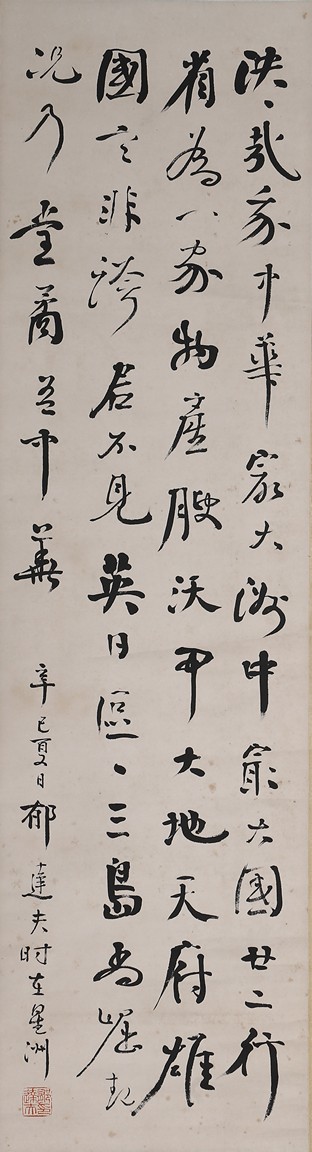 泱々哉我中華最大洲中最大國廿二行
省為一家物產腴沃甲大地天府雄
國言非誇君不見英日區々三島尚崛起
況乃堂矞吾中華
辛巳夏日郁達夫时在星洲